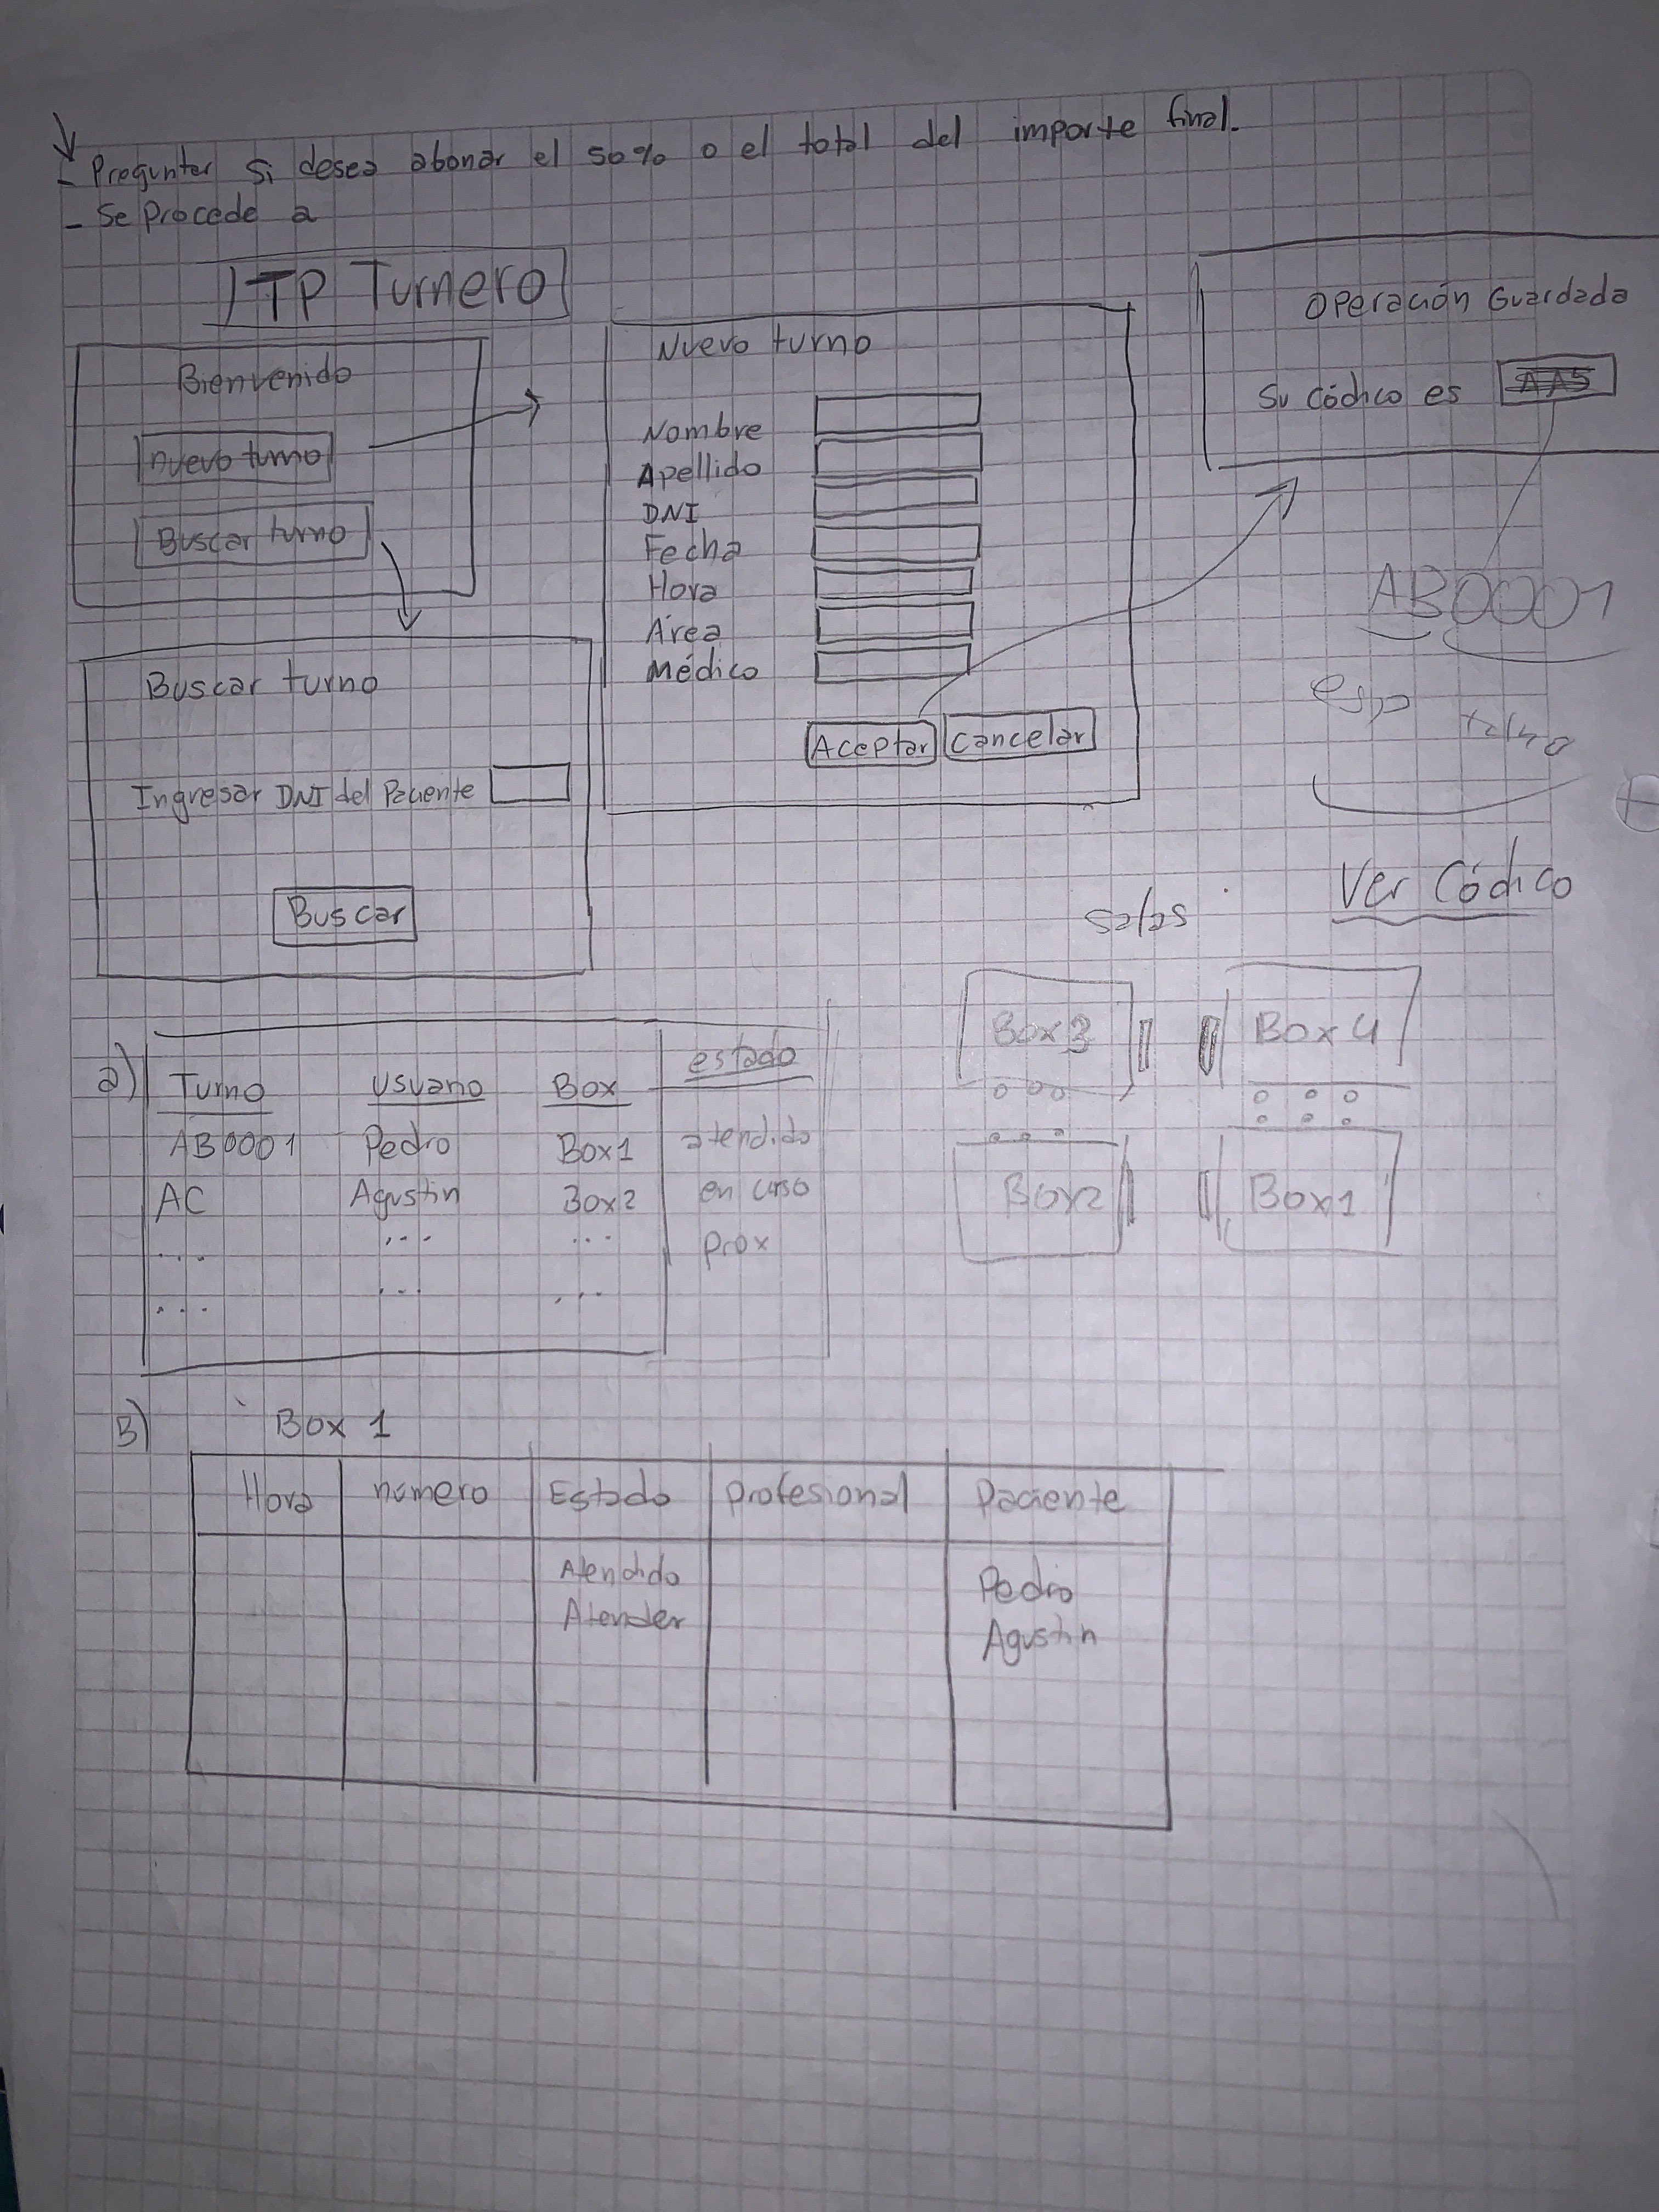 - Preguntar si desea abonar el 50% o el total del importe final.
- Se procede a
TP Turnero
Bienvenido
nuevo turno
Buscar turno
Nuevo turno
Nombre
Apellido
DNI
Fecha
Hora
Área
Médico
Aceptar Cancelar
Operación Guardada
Su códico es AA5
AB0001
espe
turno
Ver Códico
Buscar turno
Ingresar DNI del Paciente
Buscar
salas
Box3 Box 4
Box2 Box1
a)
Turno Usuario Box estado
AB0001 Pedro Box1 atendido
AC Agustin Box2 en curso
... ... ... prox
... ... ...
B) Box 1
Hora numero Estado profesional Paciente
Atendido Pedro
Atender Agustin